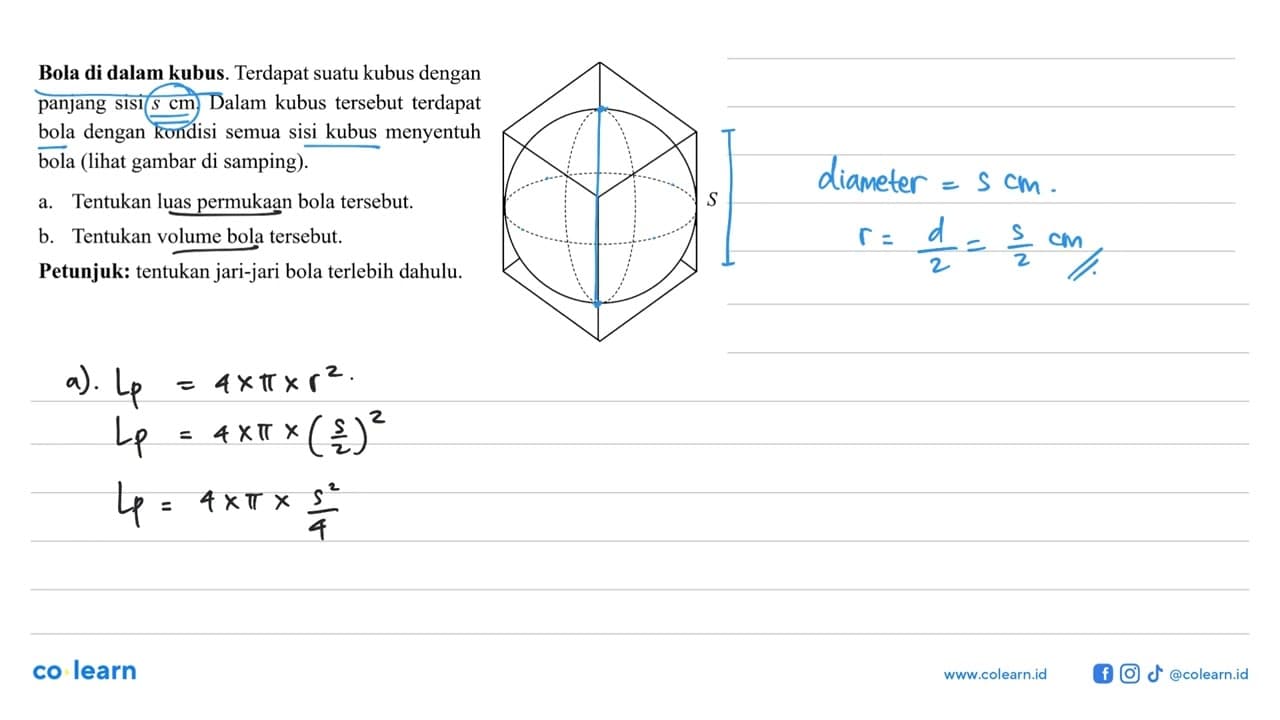 Bola di dalam kubus. Terdapat suatu kubus dengan
panjang sisi s cm. Dalam kubus tersebut terdapat
bola dengan kondisi semua sisi kubus menyentuh
bola (lihat gambar di samping).
a. Tentukan luas permukaan bola tersebut.
b. Tentukan volume bola tersebut.
Petunjuk: tentukan jari-jari bola terlebih dahulu.
S
diameter = s cm.
r = d/2 = s/2 cm
a). Lp = 4 × π × r².
Lp = 4 × π × (s/2)²
Lp = 4 × π × s²/4
co learn
www.colearn.id
@colearn.id